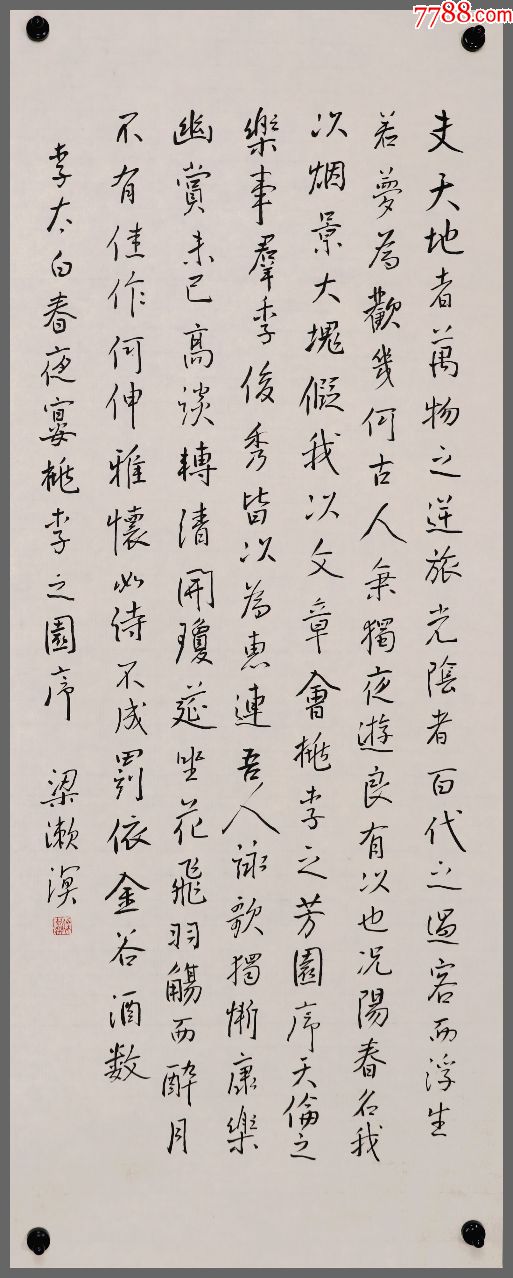 7788.com
夫天地者萬物之逆旅光陰者百代之過客而浮生
若夢為歡幾何古人秉獨夜遊良有以也况陽春名我
以烟景大塊假我以文章會桃李之芳園序天倫之
樂事羣季俊秀皆以為惠連吾人詠歌獨慚康樂
幽賞未已高談轉清開瓊莚坐花飛羽觴而醉月
不有佳作何伸雅懷必待不成罰依金谷酒数
李太白春夜宴桃李之園序 梁漱溟